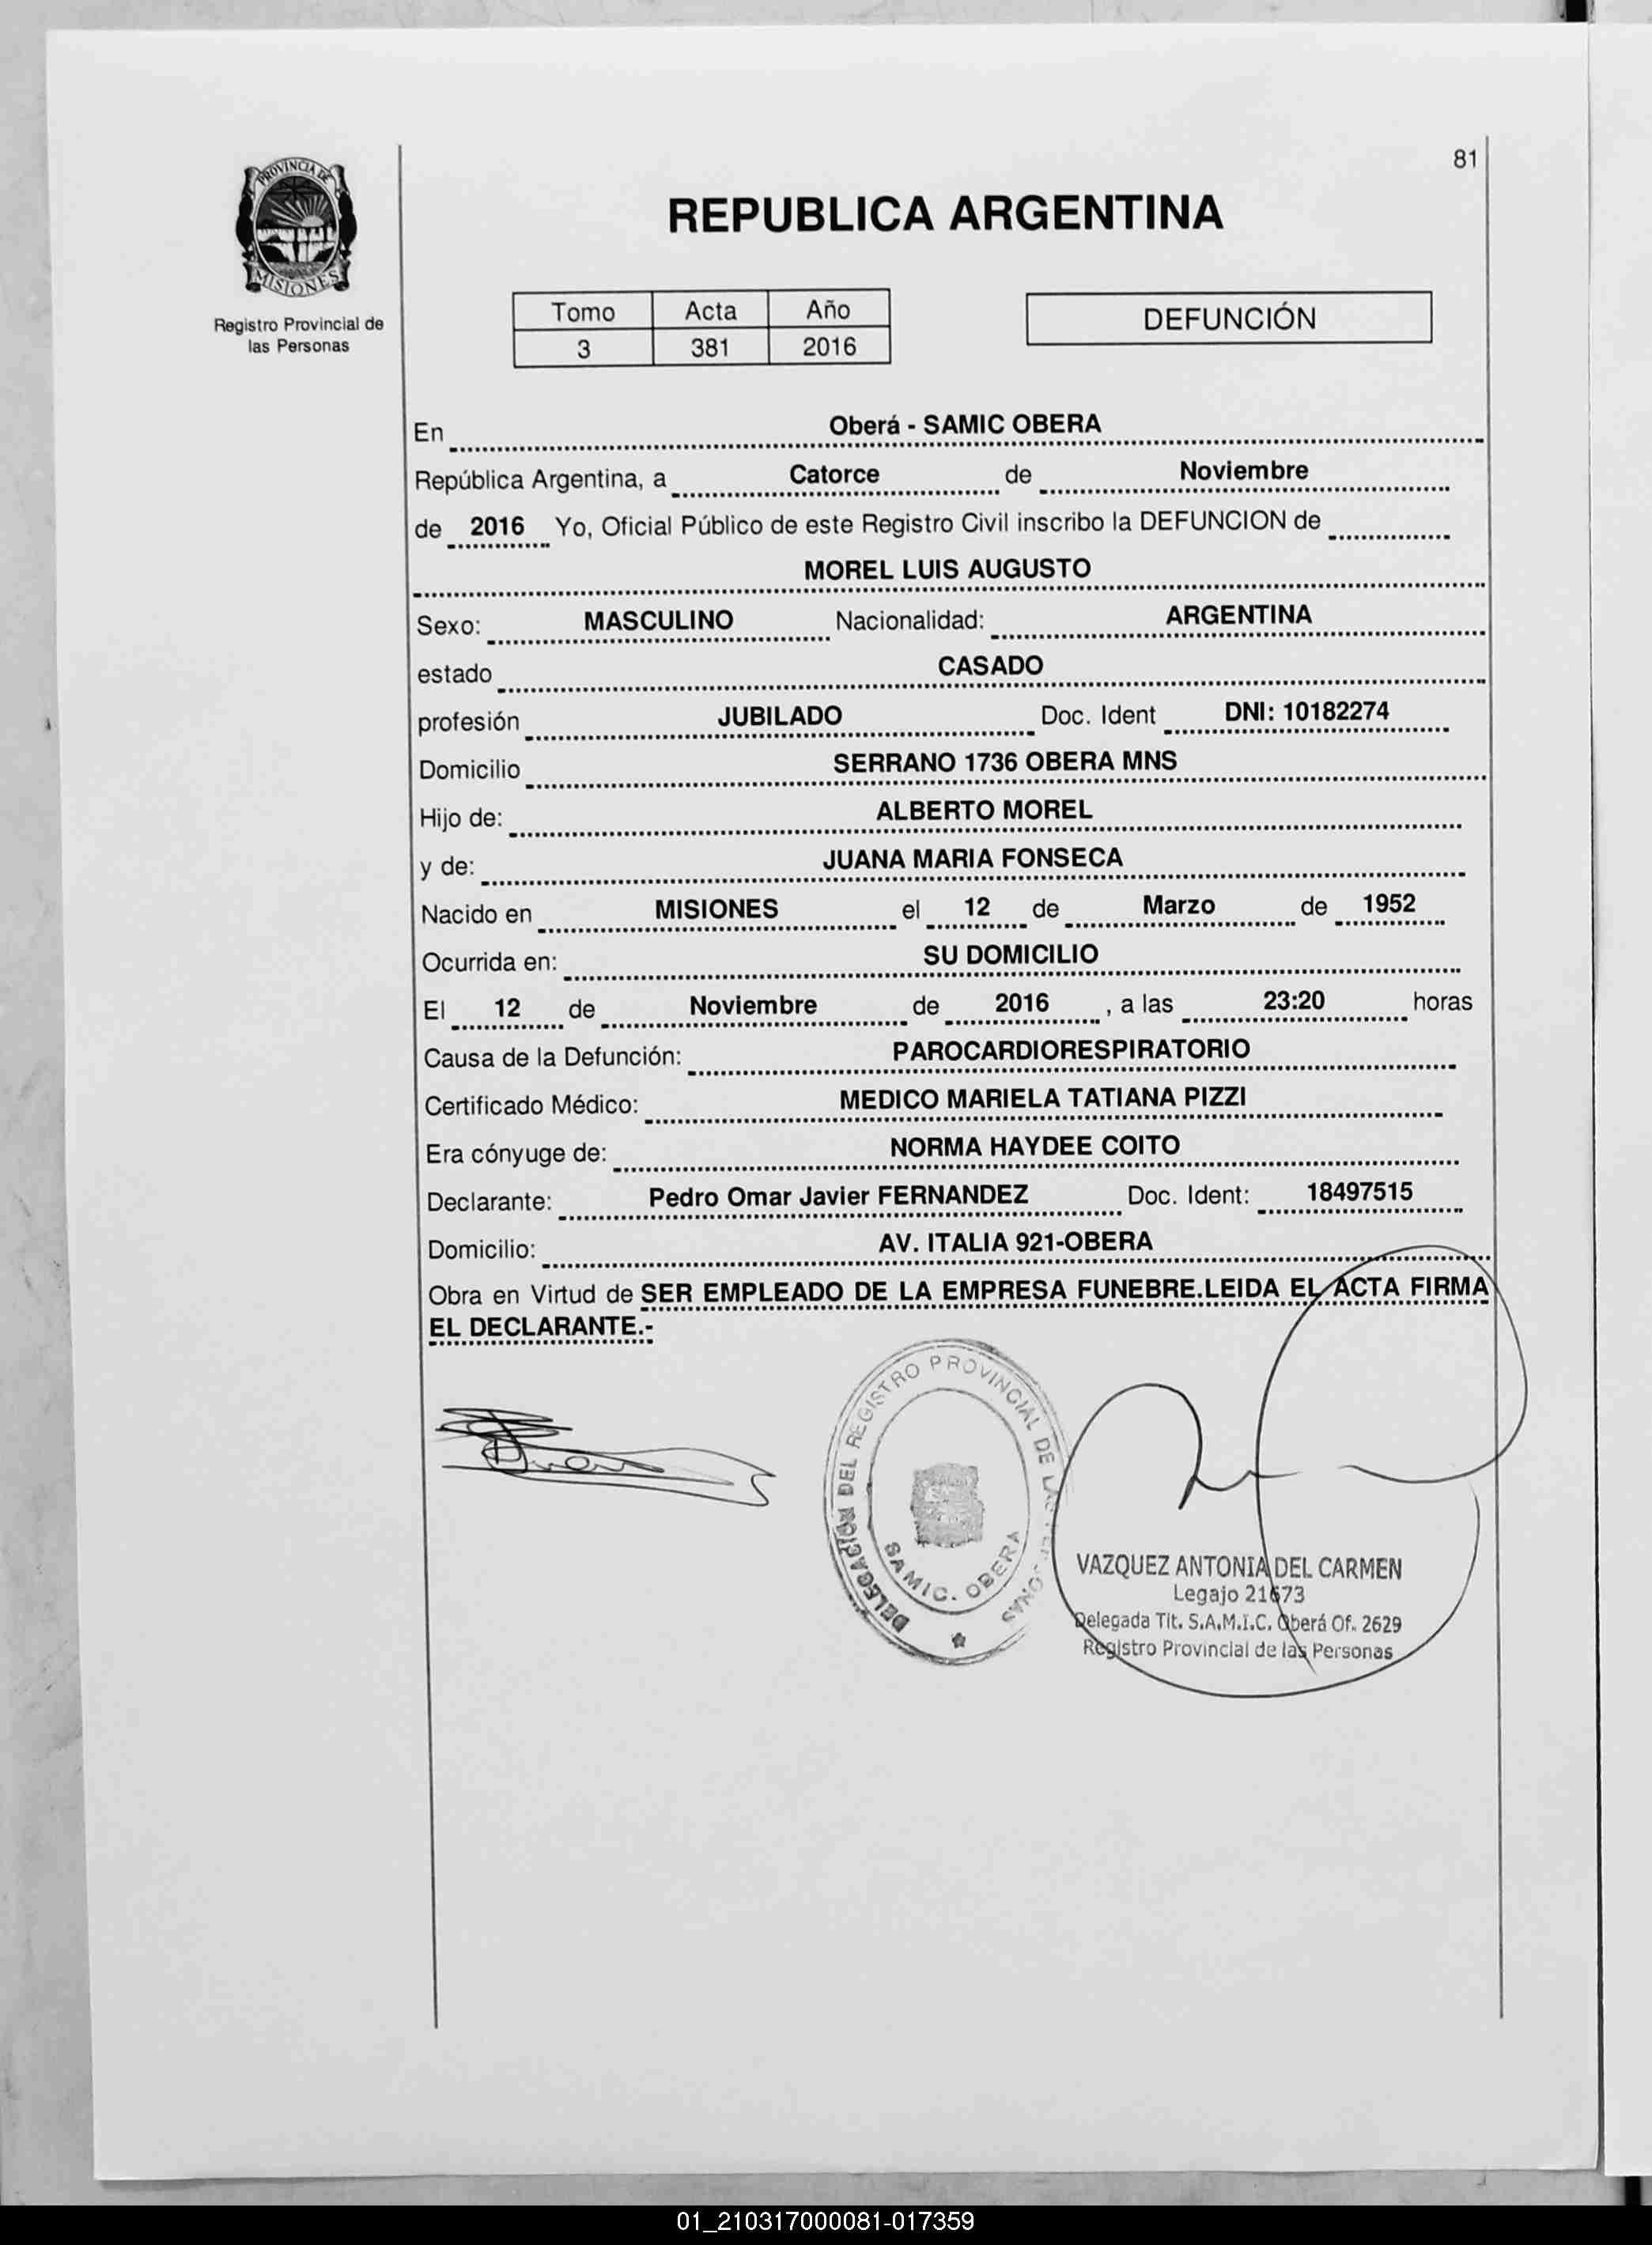 81
PROVINCIA DE
MISIONES
Registro Provincial de
las Personas
REPUBLICA ARGENTINA
Tomo Acta Año
3 381 2016
DEFUNCIÓN
En Oberá - SAMIC OBERA
República Argentina, a Catorce de Noviembre
de 2016 Yo, Oficial Público de este Registro Civil inscribo la DEFUNCION de
MOREL LUIS AUGUSTO
Sexo: MASCULINO Nacionalidad: ARGENTINA
estado CASADO
profesión JUBILADO Doc. Ident DNI: 10182274
Domicilio SERRANO 1736 OBERA MNS
Hijo de: ALBERTO MOREL
y de: JUANA MARIA FONSECA
Nacido en MISIONES el 12 de Marzo de 1952
Ocurrida en: SU DOMICILIO
El 12 de Noviembre de 2016 , a las 23:20 horas
Causa de la Defunción: PAROCARDIORESPIRATORIO
Certificado Médico: MEDICO MARIELA TATIANA PIZZI
Era cónyuge de: NORMA HAYDEE COITO
Declarante: Pedro Omar Javier FERNANDEZ Doc. Ident: 18497515
Domicilio: AV. ITALIA 921-OBERA
Obra en Virtud de SER EMPLEADO DE LA EMPRESA FUNEBRE.LEIDA EL ACTA FIRMA
EL DECLARANTE.-
DELEGACIÓN DEL REGISTRO PROVINCIAL DE LAS PERSONAS
SAMIC. OBERA
VAZQUEZ ANTONIA DEL CARMEN
Legajo 21673
Delegada Tit. S.A.M.I.C. Oberá Of. 2629
Registro Provincial de las Personas
01_210317000081-017359